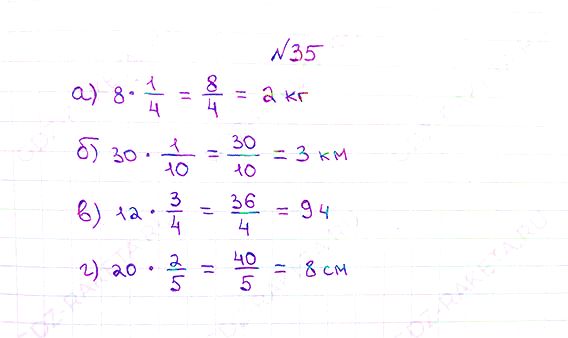 №35
а) 8 · 1/4 = 8/4 = 2 кг
б) 30 · 1/10 = 30/10 = 3 км
в) 12 · 3/4 = 36/4 = 9 ч
г) 20 · 2/5 = 40/5 = 8 см